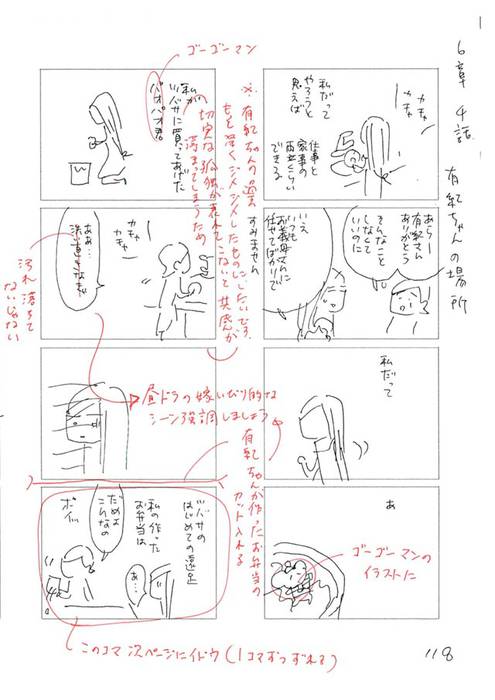 6章 4話 有紀ちゃんの場所
カチャ
カチャ
私だって
やろうと
思えば
仕事と
家事の
両立くらい
できる
あらー
有紀さん
ありがとう
そんなこと
しなくて
いいのに
いえ
いつも
お義母さんに
任せてばかりで
すみません
私だって
あ
ゴーゴーマンの
イラストに
ゴーゴーマン
私が
ツバサに買ってあげた
パオパオ君
カチャ
カチャ
ああ…
汚れ落ちて
ないじゃない
※有紀ちゃんの過去
もを驚くジメジメしたものにしたいです。
切実な孤独が表れてこないと共感が
薄まってしまうため
昼ドラの嫁いびり的な
シーン強調しましょう
有紀ちゃんが作ったお弁当の
カット入れる
ツバサの
はじめての遠足
私の作った
お弁当は
あ…
だめよ
こんなの
ポイッ
このコマ次ページにイドウ(1コマずつずれて)
118